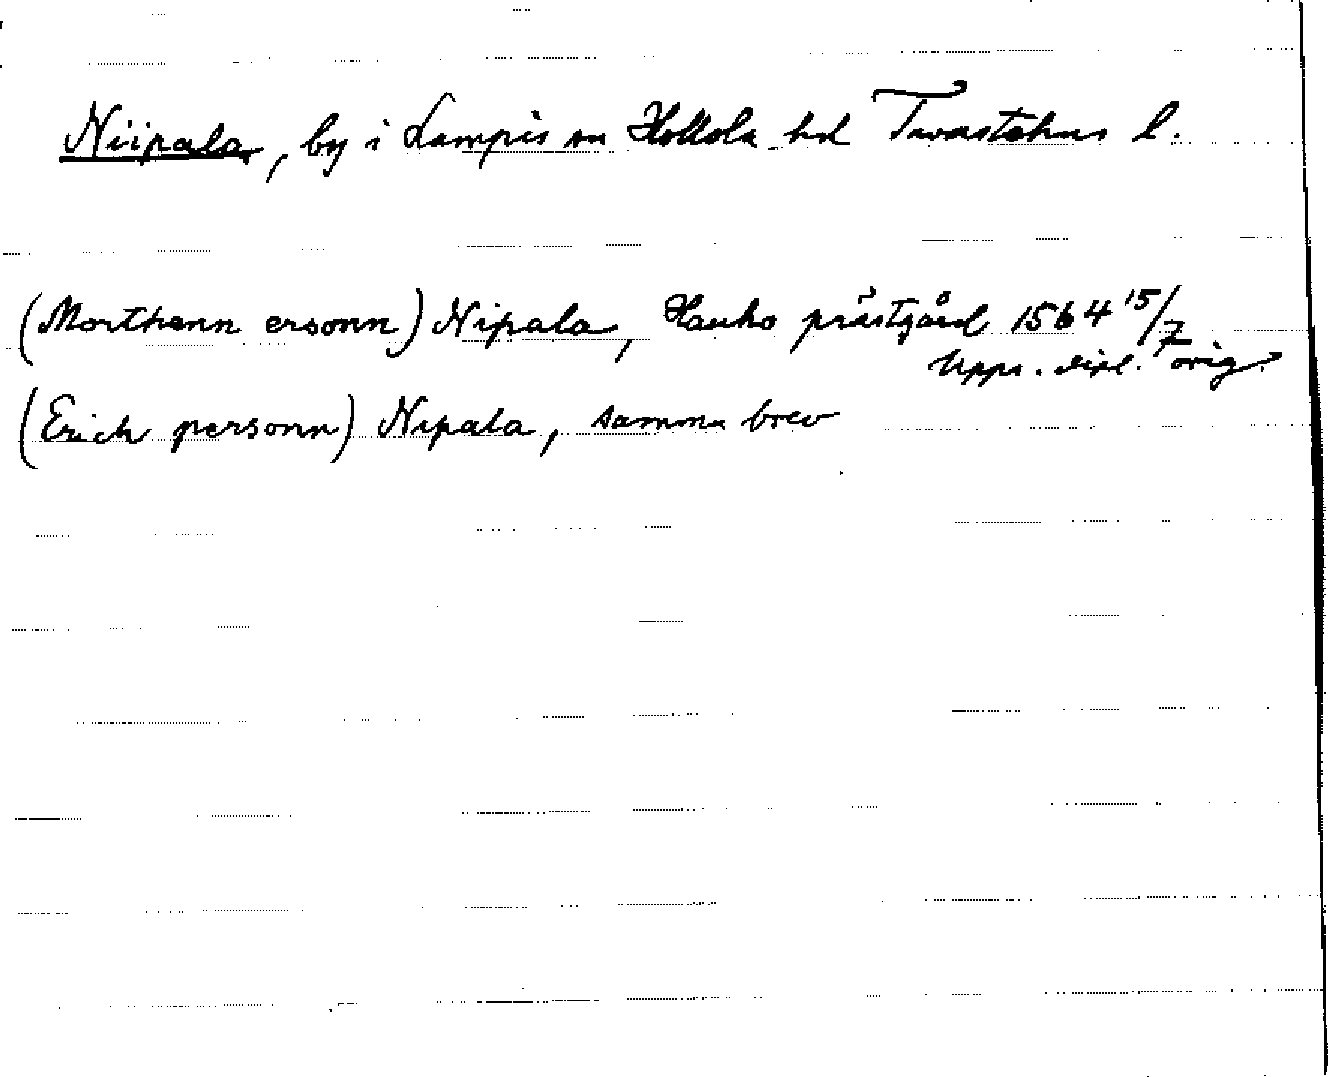 Niipala, by i Lampis sn Hollola hd Tavastehus l.
(Morthenn ersonn) Nipala, Hauho prästgård 1564 15/7
Upps. dipl. orig.
(Erich personn) Nipala, samma brev